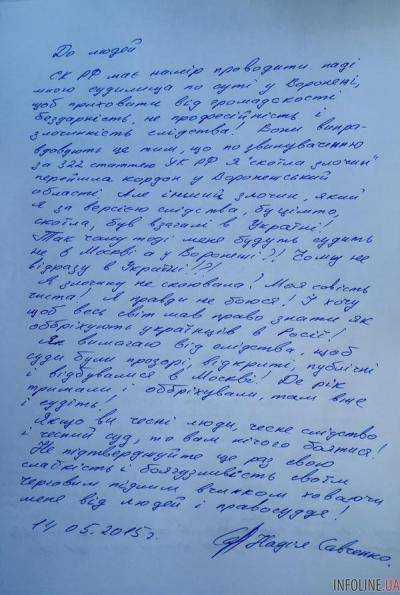 До людей
СК РФ має намір проводити наді
мною судилища по суті у Воронежі,
щоб приховати від громадскості
бездарність, не професійність і
злочинність слідства! Вони виправ-
довують це тим, що по звинуваченню
за 322 статтею УК РФ Я "скоїла злочин"
перейшла кордон у Воронежський
області. Але інший злочин, який
я за версією слідства, буцімто,
скоїла, був взагалі в Україні!
Так чому тоді мене будуть судить
не в Москві а у Воронежі?! Чому не
відразу в Україні!?!
Я злочину не скоювала! Моя совість
чиста! Я правди не боюся! І хочу
щоб весь світ мав право знати як
оббріхують українців в Росії!
Я вимагаю від слідства, щоб
суди були прозорі, відкриті, публічні
і відбувалися в Москві! Де рік
тримали і оббріхували, там вже
і судіть!
Якщо ви чесні люди, чесне слідство
і чесний суд, то вам нічого боятися!
Не підтверджуйте ще раз свою
слабкість і боягузливість своїм
черговим підлим вчинком ховаючи
мене від людей і правосуддя!
14.05.2015г.
Надія Савченко.
INFOLINE.UA